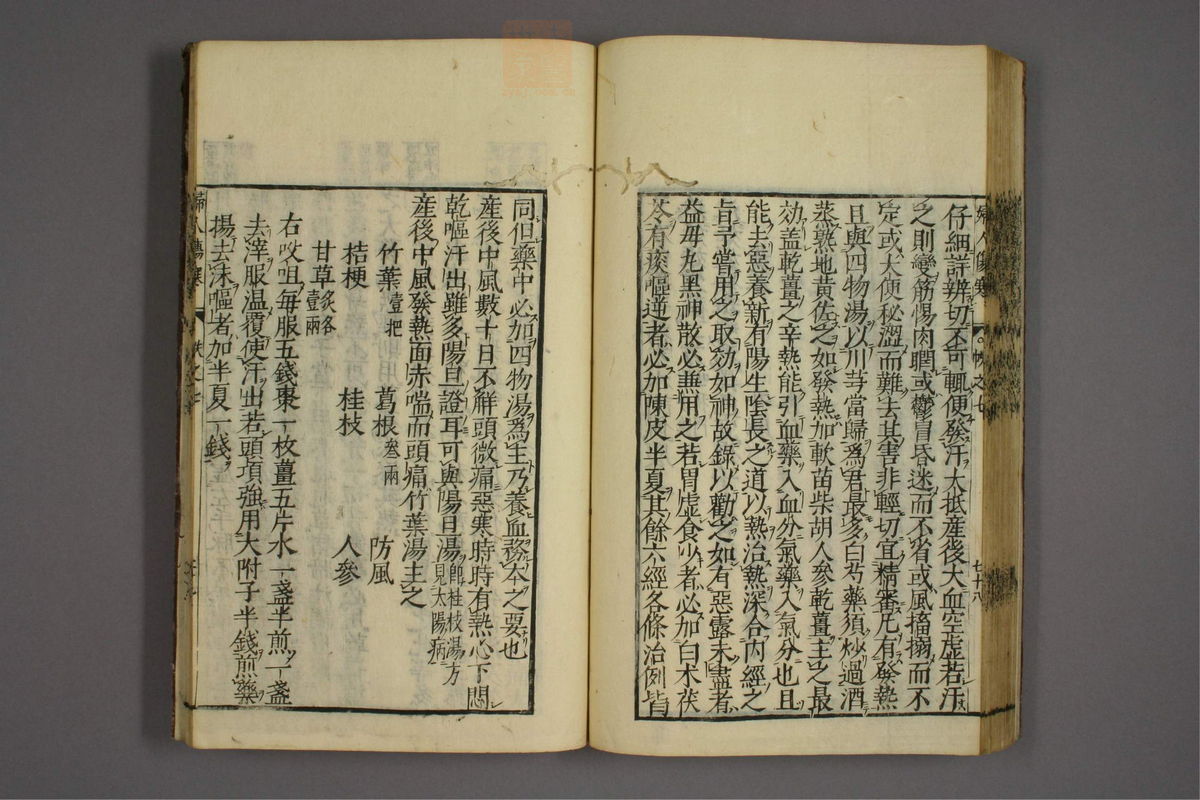 仔細詳辨切不可輒便發汗大抵産後大血空虛若汗
之則變筋惕肉瞤或鬱冒昏迷而不省或風搐搦而不
定或大便秘澀而難去其害非輕切宜精審凡有發熱
且與四物湯以川芎當歸爲君最多白芍藥須炒過酒
蒸熟地黃佐之如發熱加軟苗柴胡人參乾薑主之最
効蓋乾薑之辛熱能引血藥入血分氣藥入氣分也且
能去惡養新有陽生陰長之道以熱治熱深合内經之
旨予嘗用之取効如神故錄以勸之如有惡露未盡者
益母丸黑神散必兼用之若胃虛食少者必加白朮茯
苓有痰嘔逆者必加陳皮半夏其餘六經各條治例皆
婦人傷寒
帙之七
七十八
同但藥中必加四物湯爲主乃養血務本之要也
産後中風數十日不解頭微痛惡寒時時有熱心下悶
乾嘔汗出雖多陽旦證耳可與陽旦湯即桂枝湯方見太陽病
産後中風發熱面赤喘而頭痛竹葉湯主之
竹葉壹把 葛根叁兩 防風
桔梗 桂枝 人參
甘草炙各壹兩
右㕮咀每服五錢棗一枚薑五片水一盞半煎一盞
去滓服温覆使汗出若頭項強用大附子半錢煎藥
揚去沫嘔者加半夏一錢
婦人傷寒
帙之七